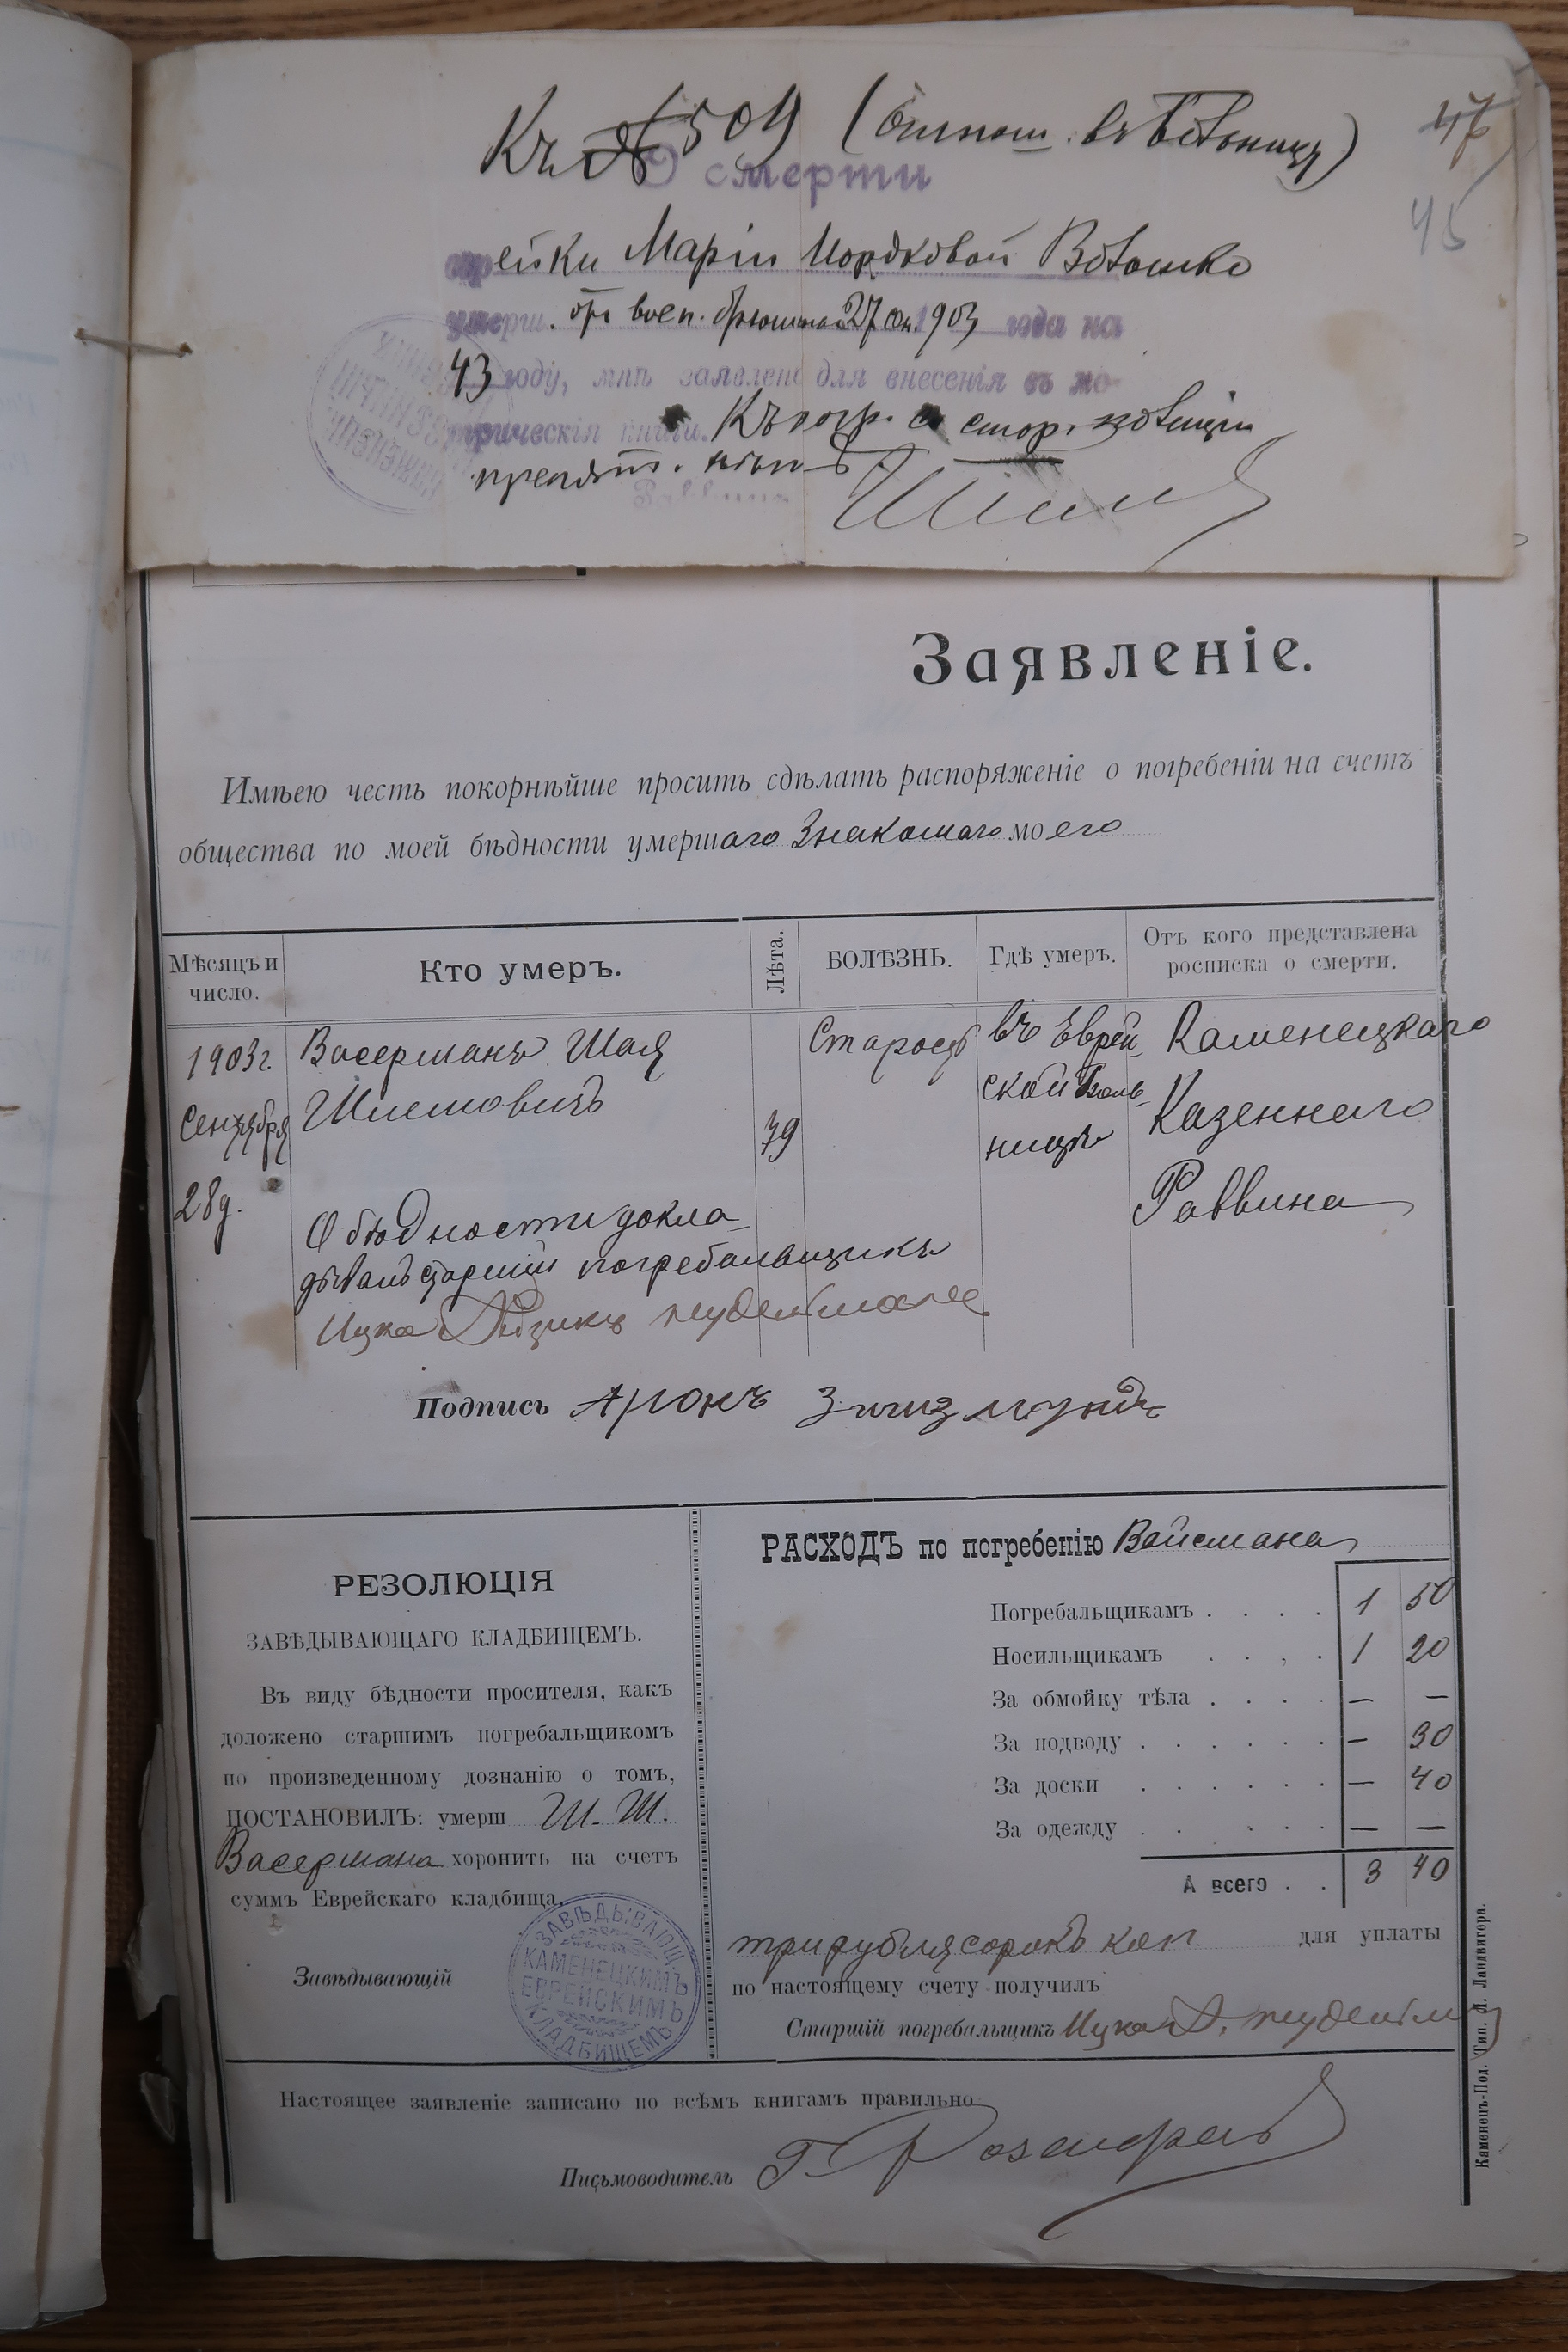 Къ № 509
47
45
О смерти
ейки Маріи Мордковой
умерш. отъ восп. 27 1903 года на
43 году, мнѣ заявлено для внесенія въ ме-
трическія книги. Къ погр. со стор. полиціи
препят. нѣтъ
Заявленіе.
Имѣю честь покорнѣйше просить сдѣлать распоряженіе о погребеніи на счетъ
общества по моей бѣдности умершаго Знакомаго моего
Мѣсяцъ и число.
Кто умеръ.
Лѣта.
БОЛѢЗНЬ.
Гдѣ умеръ.
Отъ кого представлена росписка о смерти.
1903 г. Васерманъ Шая Старость въ Еврей- Каменецкаго
Сентября 79 ской Боль- Казеннаго
28 д. ницѣ Раввина
О бѣдности докла-
дывалъ старшій погребальщикъ
Ицко
Подпись Аронъ
РЕЗОЛЮЦІЯ
ЗАВѢДЫВАЮЩАГО КЛАДБИЩЕМЪ.
Въ виду бѣдности просителя, какъ
доложено старшимъ погребальщикомъ
по произведенному дознанію о томъ,
ПОСТАНОВИЛЪ: умерш Ш. Ш.
Васермана хоронить на счетъ
суммъ Еврейскаго кладбища.
Завѣдывающій
ЗАВѢДЫВАЮЩ.
КАМЕНЕЦКИМЪ
ЕВРЕЙСКИМЪ
КЛАДБИЩЕМЪ
РАСХОДЪ по погребенію Вайсмана
Погребальщикамъ . . . . 1 50
Носильщикамъ . . . . 1 20
За обмойку тѣла . . . . — —
За подводу . . . . . . — 30
За доски . . . . . . — 40
За одежду . . . . . . — —
А всего . . 3 40
три рубля сорокъ коп для уплаты
по настоящему счету получилъ
Старшій погребальщикъ Ицко
Настоящее заявленіе записано по всѣмъ книгамъ правильно
Письмоводитель
Каменецъ-Под. Тип. Л. Ландвигера.